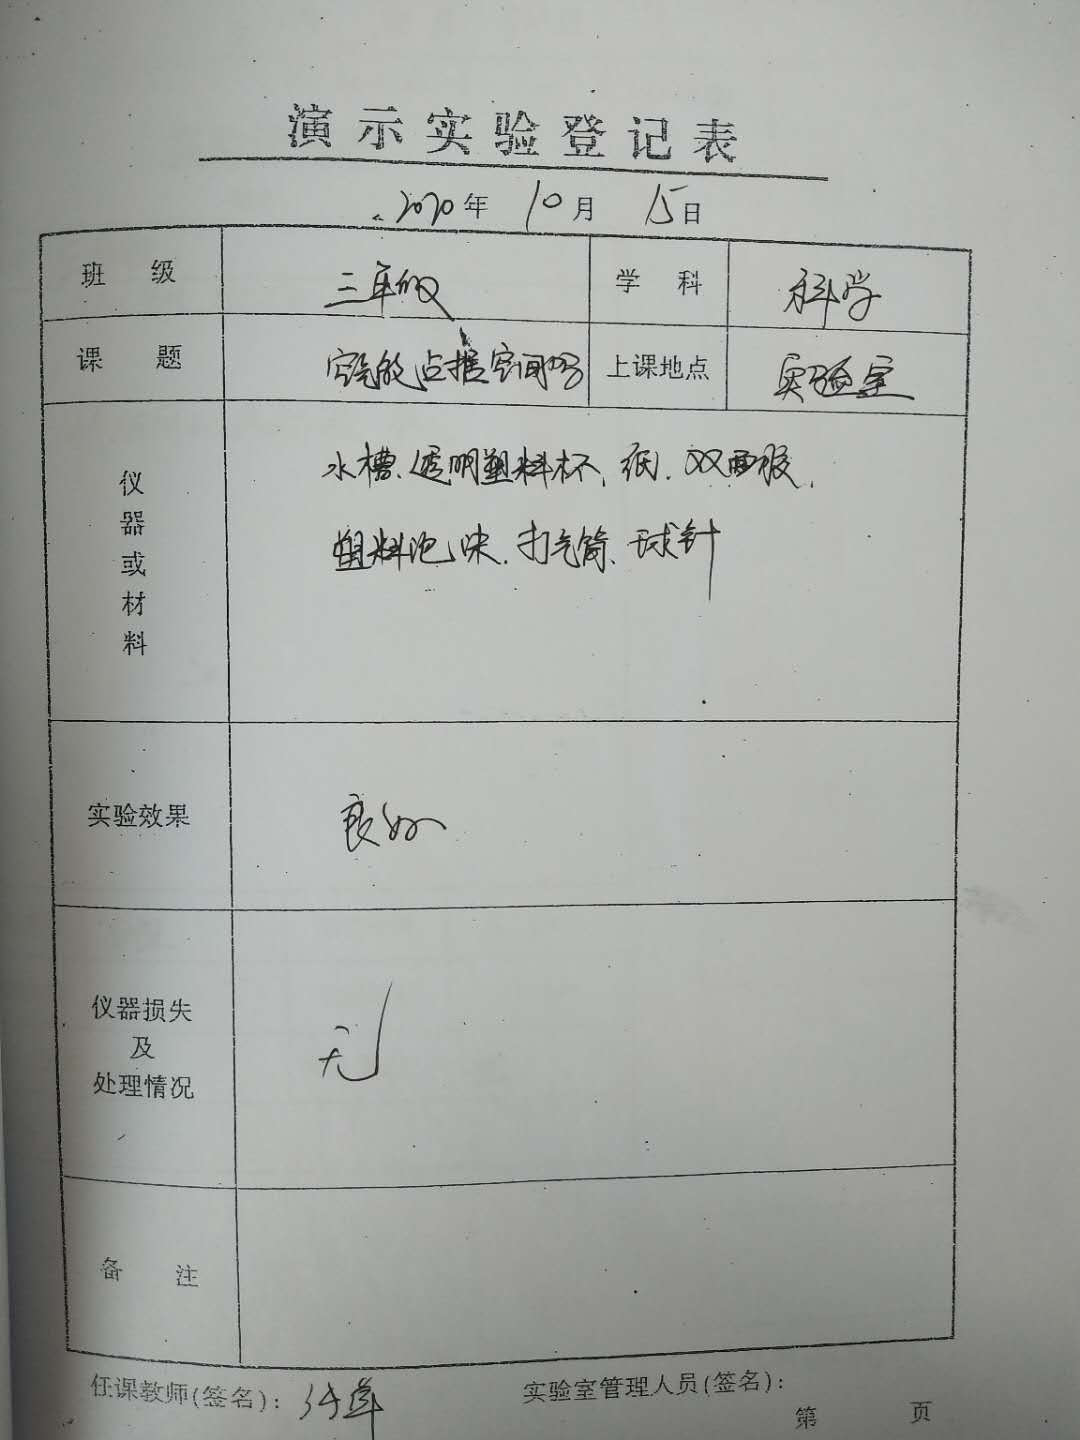 演示实验登记表
2020年 10月 15日
班 级 三年级 学 科 科学
课 题 空气能占据空间吗 上课地点 实验室
仪器或材料
水槽、透明塑料杯、纸、双面胶、
塑料泡沫、打气筒、球针
实验效果 良好
仪器损失
及
处理情况
无
备 注
任课教师(签名):
实验室管理人员(签名):
第 页